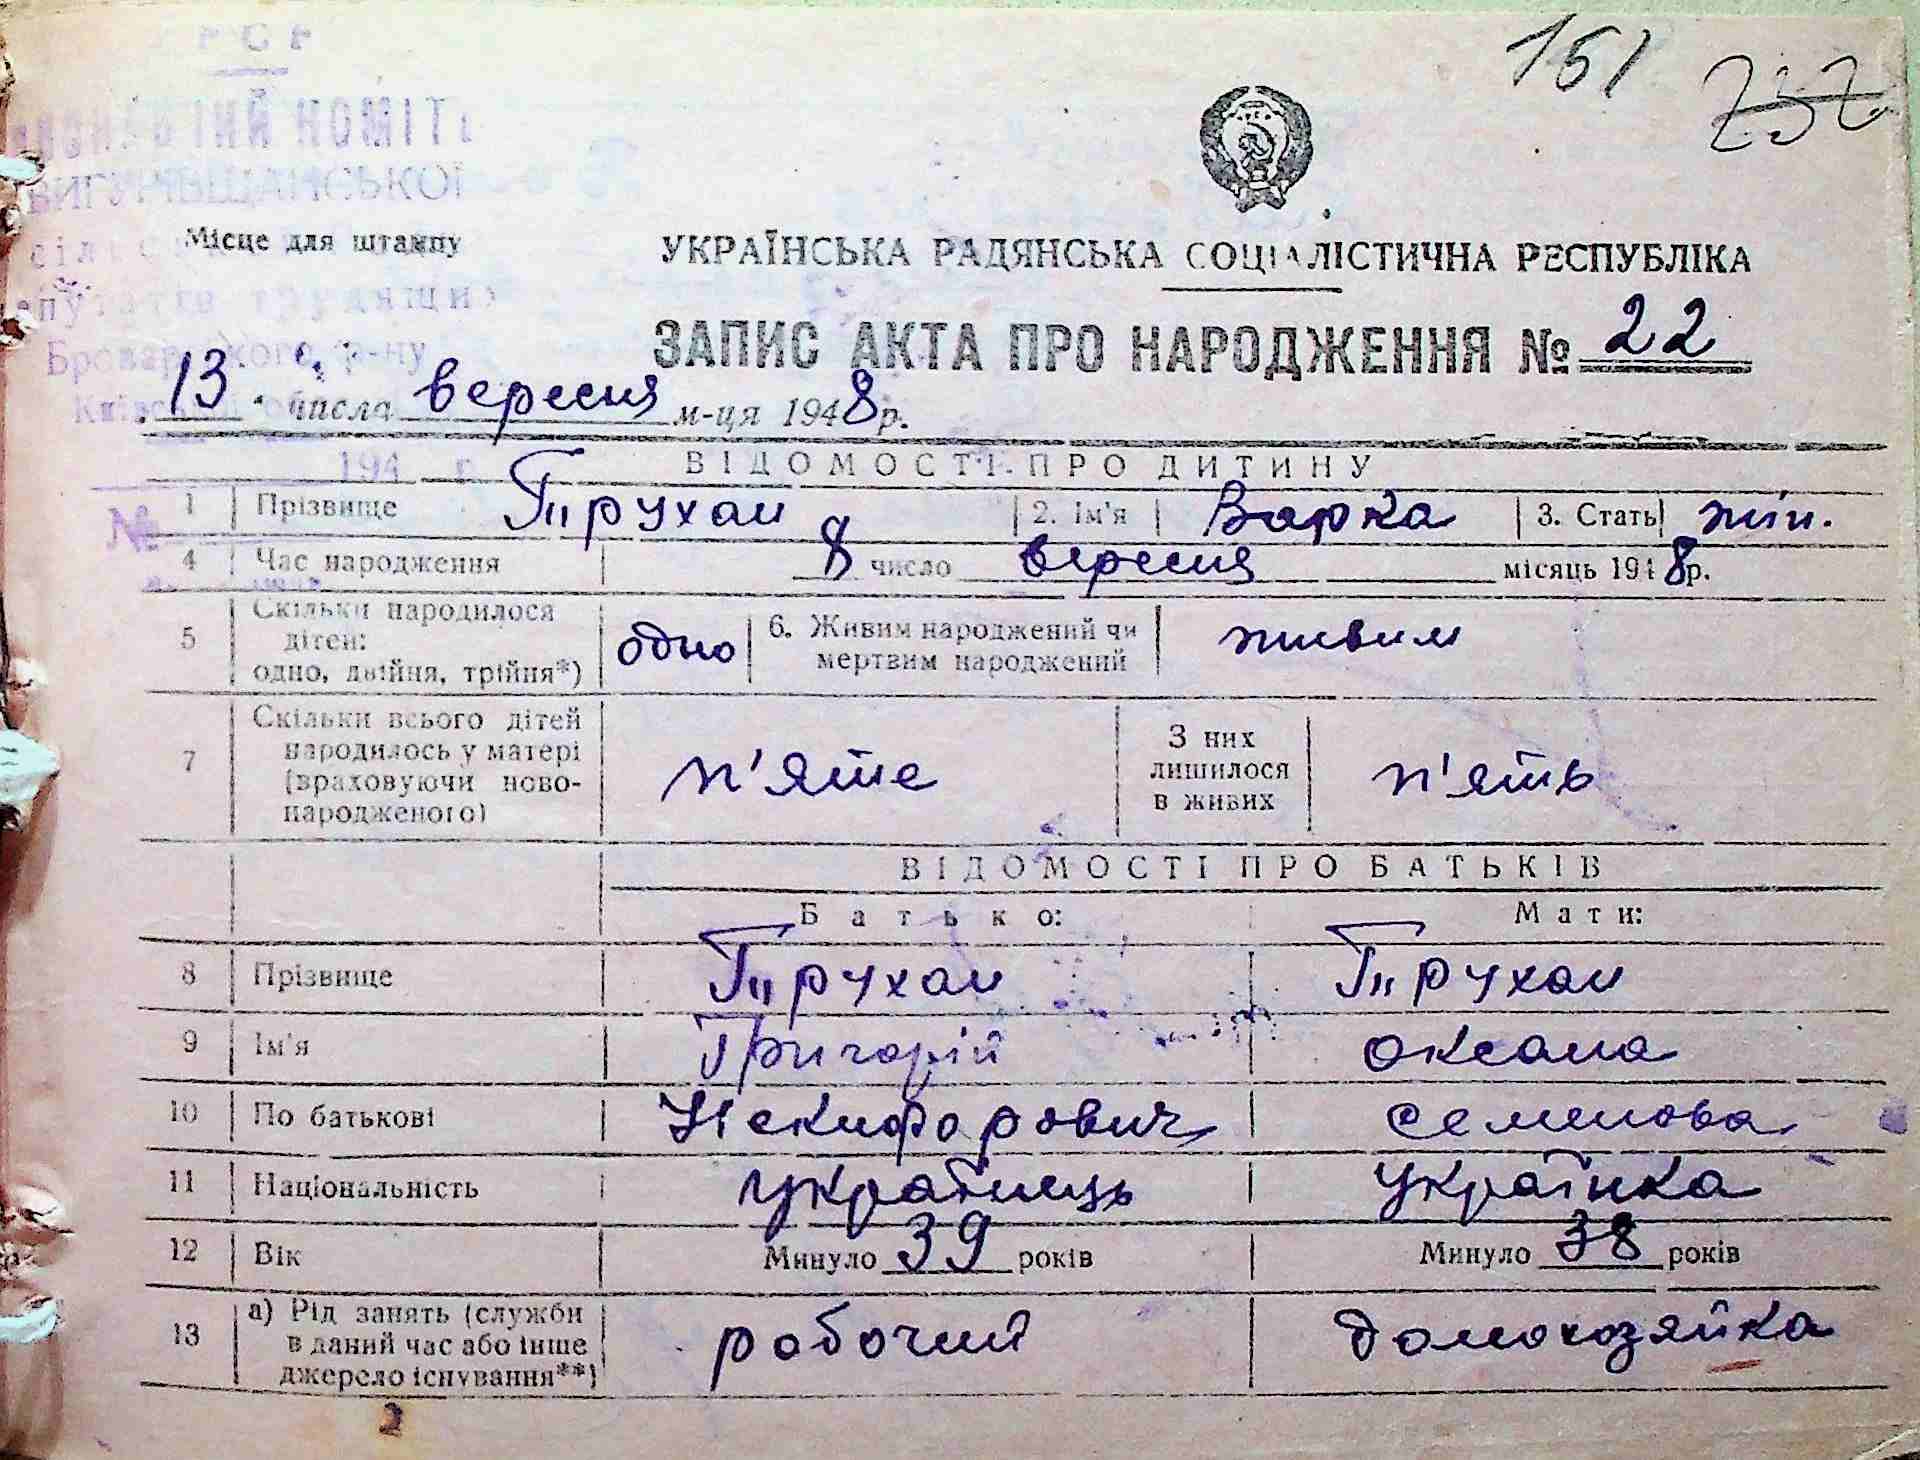 Р С Р
151 232
КОМІТ
ВИГУРІВЩАНСЬКОЇ
Місце для штампу
УКРАЇНСЬКА РАДЯНСЬКА СОЦІАЛІСТИЧНА РЕСПУБЛІКА
трудящих
ЗАПИС АКТА ПРО НАРОДЖЕННЯ № 22
Броварського р-ну
13 числа вересня м-ця 1948 р.
194 г.
ВІДОМОСТІ ПРО ДИТИНУ
1 Прізвище Трухан 2. Ім'я Варка 3. Стать жін.
№
4 Час народження 8 число вересня місяць 1948 р.
5 Скільки народилося
дітей:
одно, двійня, трійня*) одно 6. Живим народжений чи
мертвим народжений живим
7 Скільки всього дітей
народилось у матері
(враховуючи ново-
народженого) п'яте З них
лишилося
в живих п'ять
ВІДОМОСТІ ПРО БАТЬКІВ
Батько: Мати:
8 Прізвище Трухан Трухан
9 Ім'я Григорій Оксана
10 По батькові Нікифорович Семенова
11 Національність українець українка
12 Вік Минуло 39 років Минуло 38 років
13 а) Рід занять (служби
в даний час або інше
джерело існування**) робочий домохозяйка
2